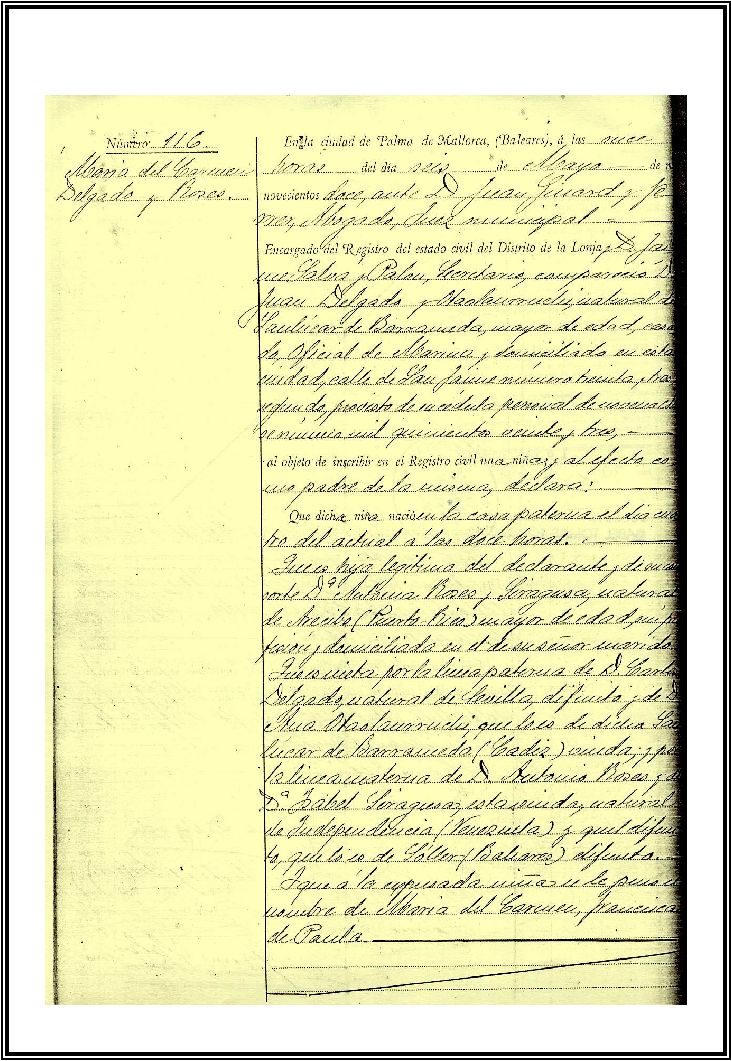 Número 116
Maria del Carmen
Delgado y Roses.
En la ciudad de Palma de Mallorca, (Baleares), á las nueve
horas del día seis de Mayo de
novecientos doce, ante D. Juan y
Abogado, Juez municipal
Encargado del Registro del estado civil del Distrito de la Lonja, y D. Jai
me Salvá y Palou, Secretario, compareció D.
Juan Delgado y Otaolaurruchi, natural de
Sanlúcar de Barrameda, mayor de edad, casa
do, Oficial de Marina y domiciliado en esta
ciudad, calle de San Jaime número treinta,
segundo, provisto de su cédula personal de
número mil quinientos veinte y tres,
al objeto de inscribir en el Registro civil una niña; y al efecto co
mo padre de la misma, declara:
Que dicha niña nació en la casa paterna el día cua
tro del actual á las doce horas.
Que es hija legítima del declarante y de su con
sorte Dª Antonia Roses y Siragusa, natural
de Arecibo (Puerto Rico) mayor de edad, sin pro
fesión y domiciliada en el de su señor marido.
Que es nieta por la línea paterna de D. Carlos
Delgado, natural de Sevilla, difunto y de Dª
Ana Otaolaurruchi, que lo es de dicha San
lúcar de Barrameda (Cadiz) viuda; y por
la línea materna de D. Antonio Roses y de
Dª Isabel Siragusa, esta viuda, natural
de Independencia (Venezuela) y aquel difun
to, que lo es de Sóller (Baleares) difunto.
Y que á la expresada niña se le puso el
nombre de Maria del Carmen, Francisca
de Paula.